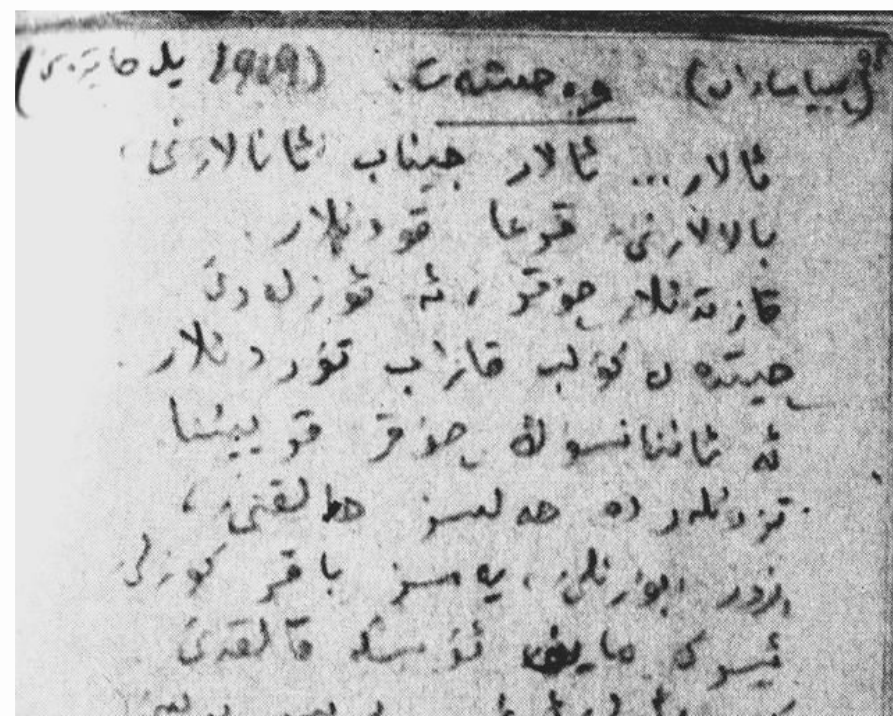 وەحشەت.
ئالار... ئالار جيناب ئانالارنى،
بالالارنى قرعا قودىلار.
قازتدىلار چوقر، ئە ئوزلەرى
چيتدەن كولب قاراب توردىلار.
ئە ئاننانسوڭ چوقر قويىنا
تزدىلەر دە حەلسز حالقنى،
زور بورنلى، يەمسز باقر كوزلى
ئيسرك مايور ئوسكە قالقدى